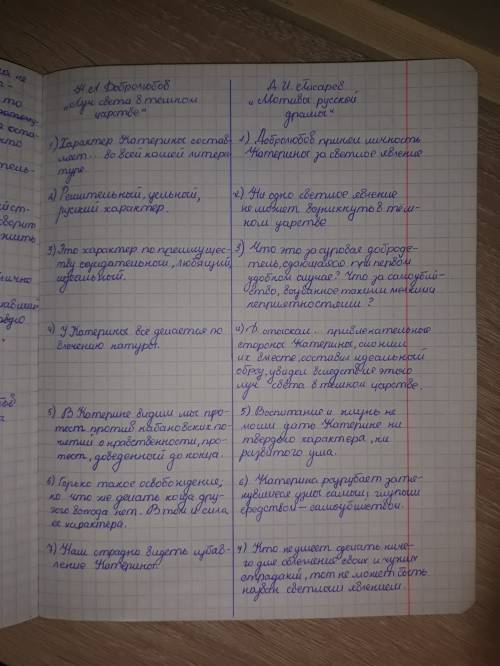 Н. А. Добролюбов
"Луч света в темном
царстве"
1) Характер Катерины состав-
ляет... во всей нашей литера-
туре.
2) Решительный, цельный,
русский характер.
3) Это характер по преимущес-
тву созидательный, любящий,
идеальный.
4) У Катерины все делается по
влечению натуры.
5) В Катерине видим мы про-
тест против кабановских по-
нятий о нравственности, про-
тест, доведенный до конца.
6) Горько такое освобождение,
но что же делать когда дру-
гого выхода нет. В том и сила
ее характера.
7) Нам отрадно видеть избав-
ление Катерины.
Д. И. Писарев
"Мотивы русской
драмы"
1) Добролюбов принял личность
Катерины за светлое явление
2) Ни одно светлое явление
не может возникнуть в тем-
ном царстве
3) Что это за суровая доброде-
тель, сдающаяся при первом
удобном случае? Что за самоубий-
ство, вызванное такими мелкими
неприятностями?
4) Д. отыскал... привлекательные
стороны Катерины, сложил
их вместе, составил идеальный
образ, увидел вследствие этого
луч света в темном царстве.
5) Воспитание и жизнь не
могли дать Катерине ни
твердого характера, ни
развитого ума.
6) Катерина разрубает затя-
нувшиеся узлы самым глупым
средством - самоубийством.
7) Кто не умеет сделать ниче-
го для облегчения своих и чужих
страданий, тот не может быть
назван светлым явлением.